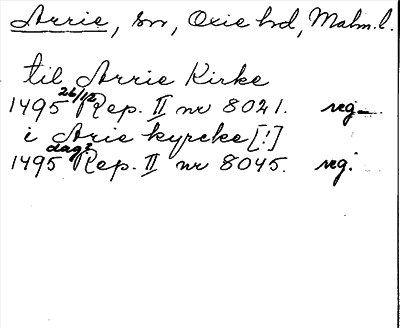 Arrie, sn, Oxie hd, Malm. l.
til Arrie Kirke
1495 26/12 Rep. II nr 8021. reg.
i Arie kyrcke [!]
1495 dag? Rep. II nr 8045. reg.